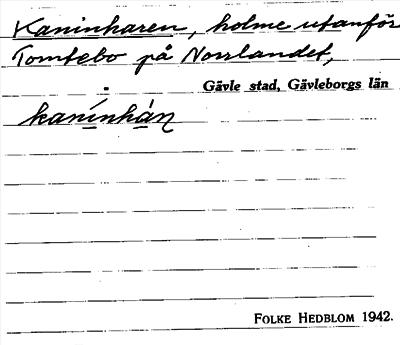 Kaninharen, holme utanför
Tomtebo på Norrlandet,
Gävle stad, Gävleborgs län
kanínhán
FOLKE HEDBLOM 1942.